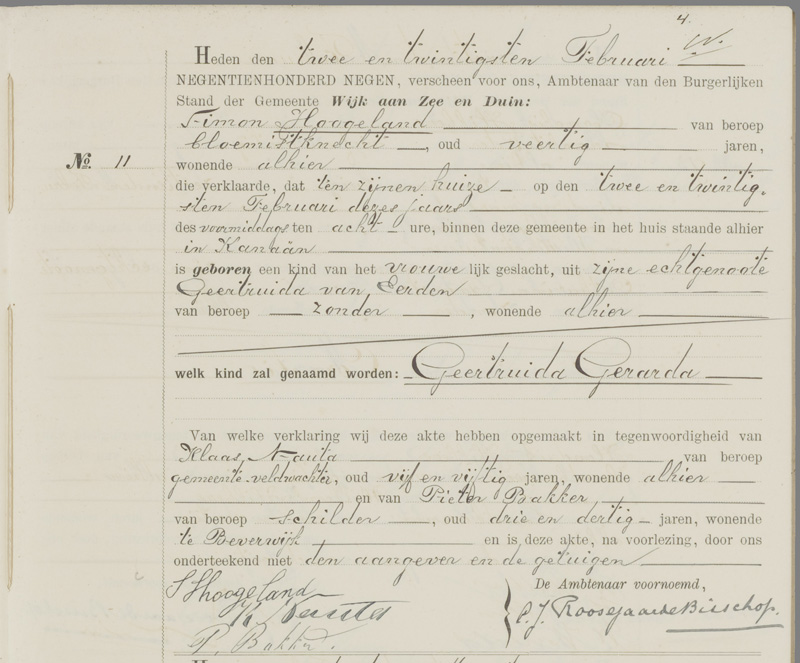 4.
Heden den twee en twintigsten Februari
NEGENTIENHONDERD NEGEN, verscheen voor ons, Ambtenaar van den Burgerlijken
Stand der Gemeente Wijk aan Zee en Duin:
Simon Hoogeland van beroep
bloemistknecht, oud veertig jaren,
No. 11
wonende alhier
die verklaarde, dat ten zijnen huize op den twee en twintig-
sten Februari dezes jaars
des voormiddags ten acht ure, binnen deze gemeente in het huis staande alhier
in Kanaän
is geboren een kind van het vrouwelijk geslacht, uit zijne echtgenoote
Geertruida van Eerden
van beroep zonder, wonende alhier
welk kind zal genaamd worden: Geertruida Gerarda
Van welke verklaring wij deze akte hebben opgemaakt in tegenwoordigheid van
Klaas Nauta van beroep
gemeente-veldwachter, oud vijf en vijftig jaren, wonende alhier
en van Pieter Bakker
van beroep schilder, oud drie en dertig jaren, wonende
te Beverwijk en is deze akte, na voorlezing, door ons
onderteekend met den aangever en de getuigen
S Hoogeland
De Ambtenaar voornoemd,
P. Bakker.